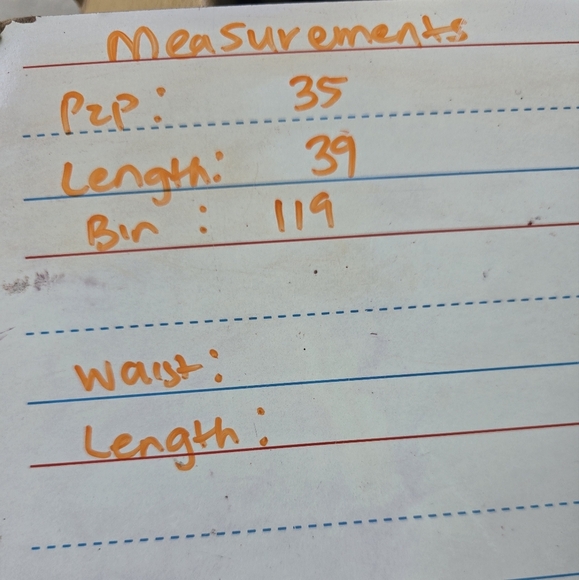 Measurements
P2P: 35
Length: 39
Bin : 119
Waist:
Length: